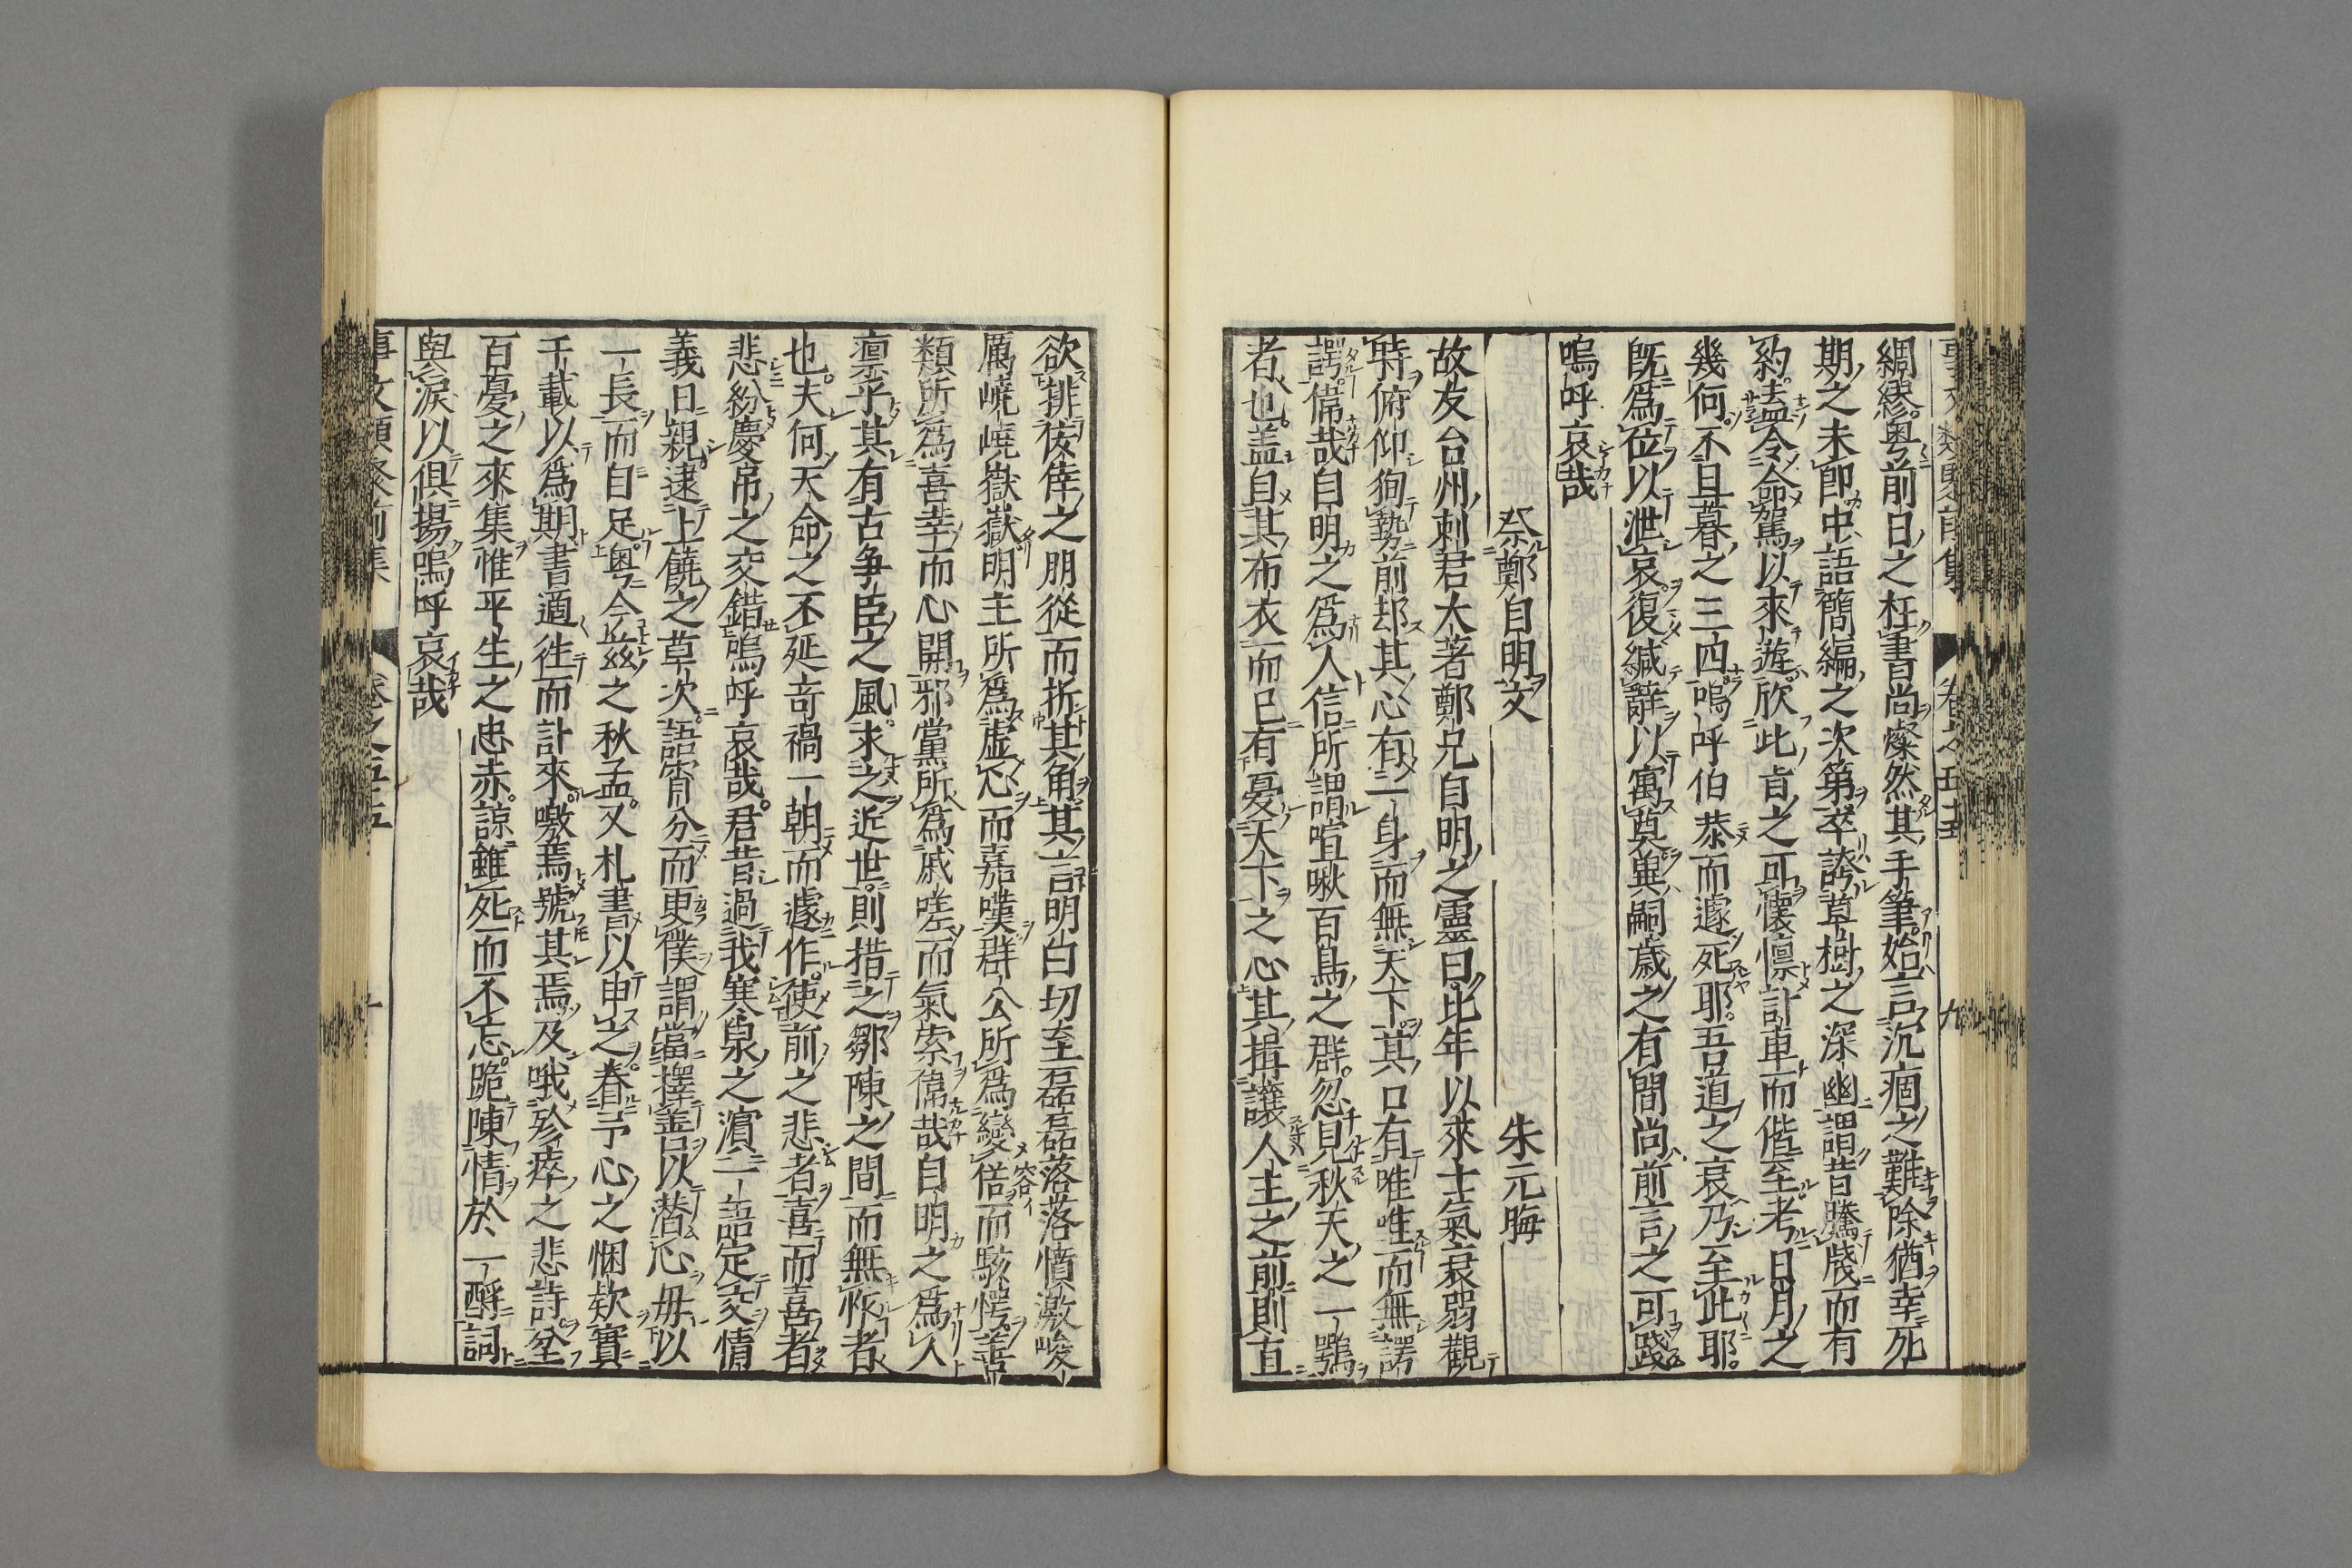 事文類聚前集 卷之五十五 九
綢繆粤前日之枉書尚燦然其手筆始言沉痼之難除猶幸死
期之未即中語簡編之次第卒誇草樹之深幽謂昔騰牋而有
約盍今命駕以來遊欣此㫖之可懷懔計車而偕至考日月之
幾何不旦暮之三四嗚呼伯恭而遽死耶吾道之衰乃至此耶
旣爲位以泄哀復緘辭以寓奠冀嗣歲之有間尚前言之可踐
嗚呼哀哉
祭鄭自明文 朱元晦
故友台州刺君太著鄭兄自明之靈曰比年以來士氣衰弱觀
時俯仰狥勢前却其心有一身而無天下其口有唯唯而無諤
諤偉哉自明之爲人信所謂喧啾百鳥之群忽見秋天之一鶚
者也盖自其布衣而已有憂天下之心其揖讓人主之前則直
欲排倿倖之朋從而折其角其言明白切至磊磊落落憤激峻
厲嶢嶢嶽嶽明主所爲虚心而嘉嘆群公所爲變偣而駭愕善
類所爲喜幸而心開邪黨所爲戚嗟而氣索偉哉自明之爲人
凛乎其有古争臣之風求之近世則措之鄒陳之間而無怍者
也夫何天命之不延竒禍一朝而遽作使前之悲者喜而喜者
悲紛慶吊之交錯嗚呼哀哉君昔過我寒泉之濵一語定交情
義日親逮上饒之草次語宵分而更僕謂當擇善以潜心毋以
一長而自足粤今兹之秋孟又札書以申之眷予心之悃欵實
千載以爲期書適徃而計來噭焉號其焉及哦殄瘁之悲詩坌
百憂之來集惟平生之忠赤諒雖死而不忘跪陳情於一酹詞
與淚以俱揚嗚呼哀哉
事文類聚前集 卷之五十五 十